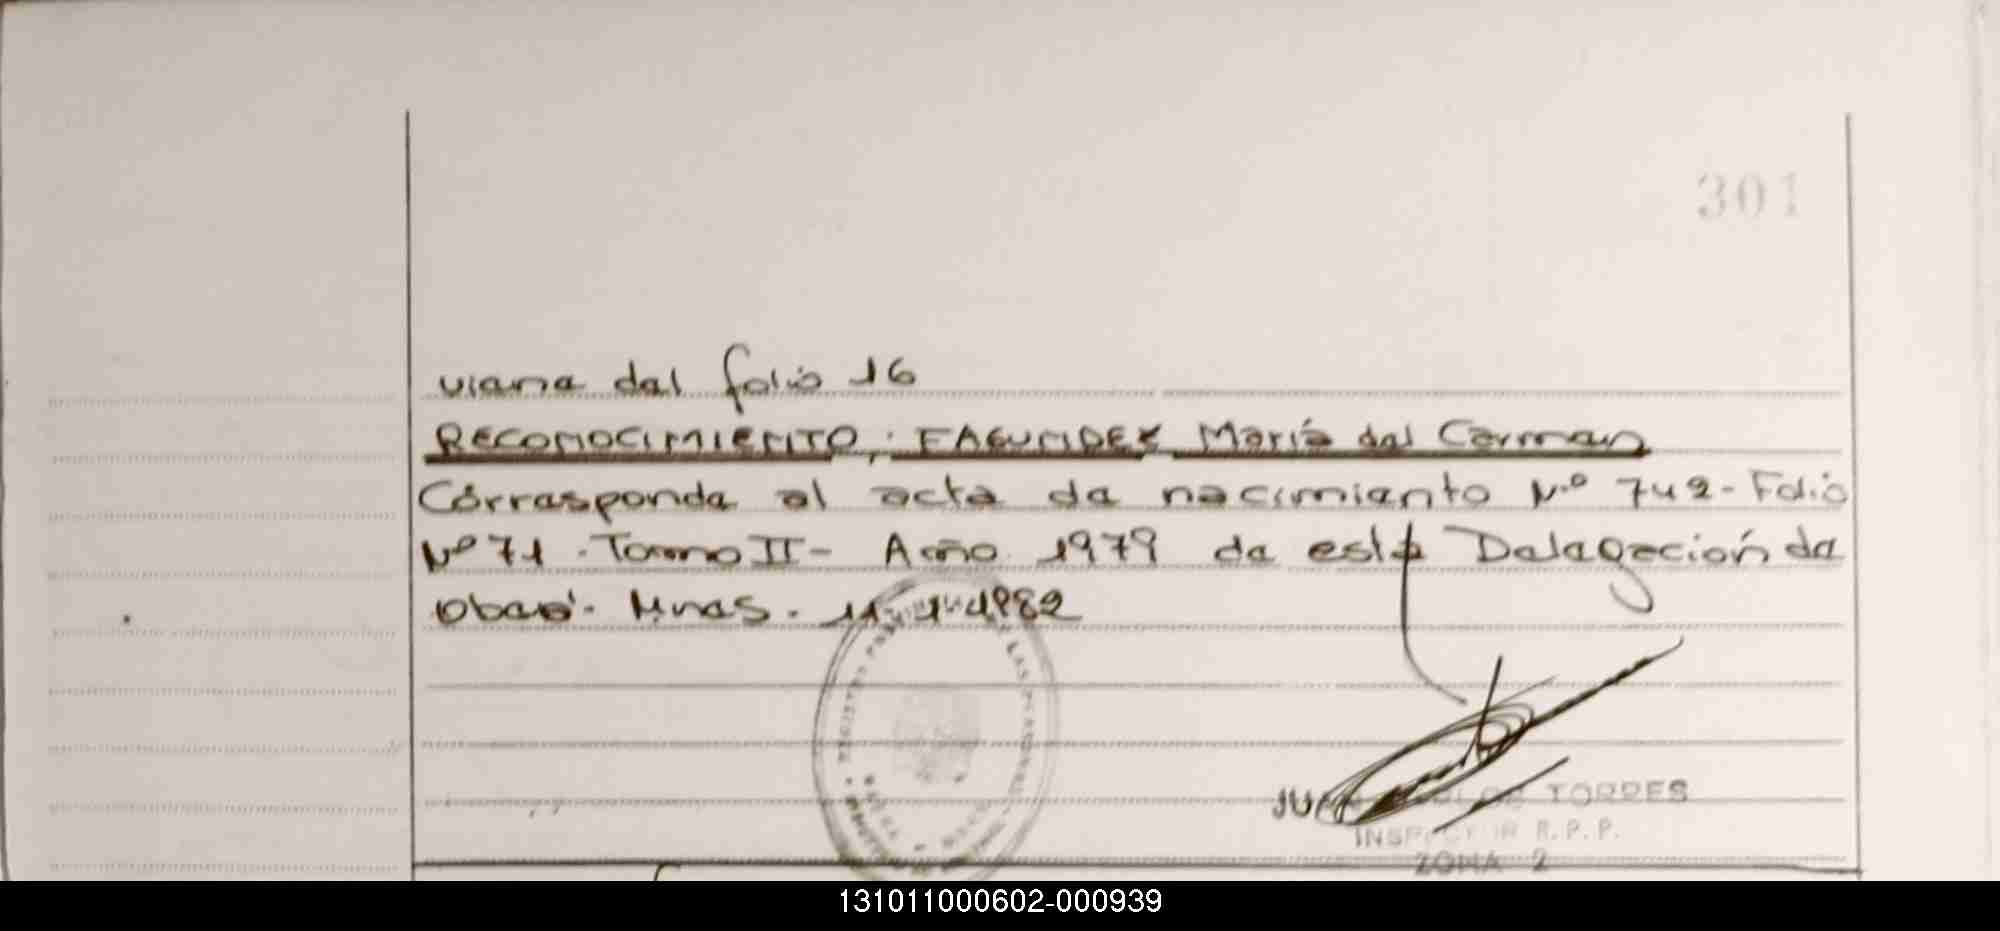 301
viene del folio 16
RECONOCIMIENTO, FAGUNDEZ María del Carmen
Corresponde al acta de nacimiento Nº 742 - Folio
Nº 71 - Tomo II - Año 1979 de esta Delegación de
Oberá - Mnes. 11-1-1982
TORRES
INSPECTOR R.P.P.
ZONA 2
131011000602-000939